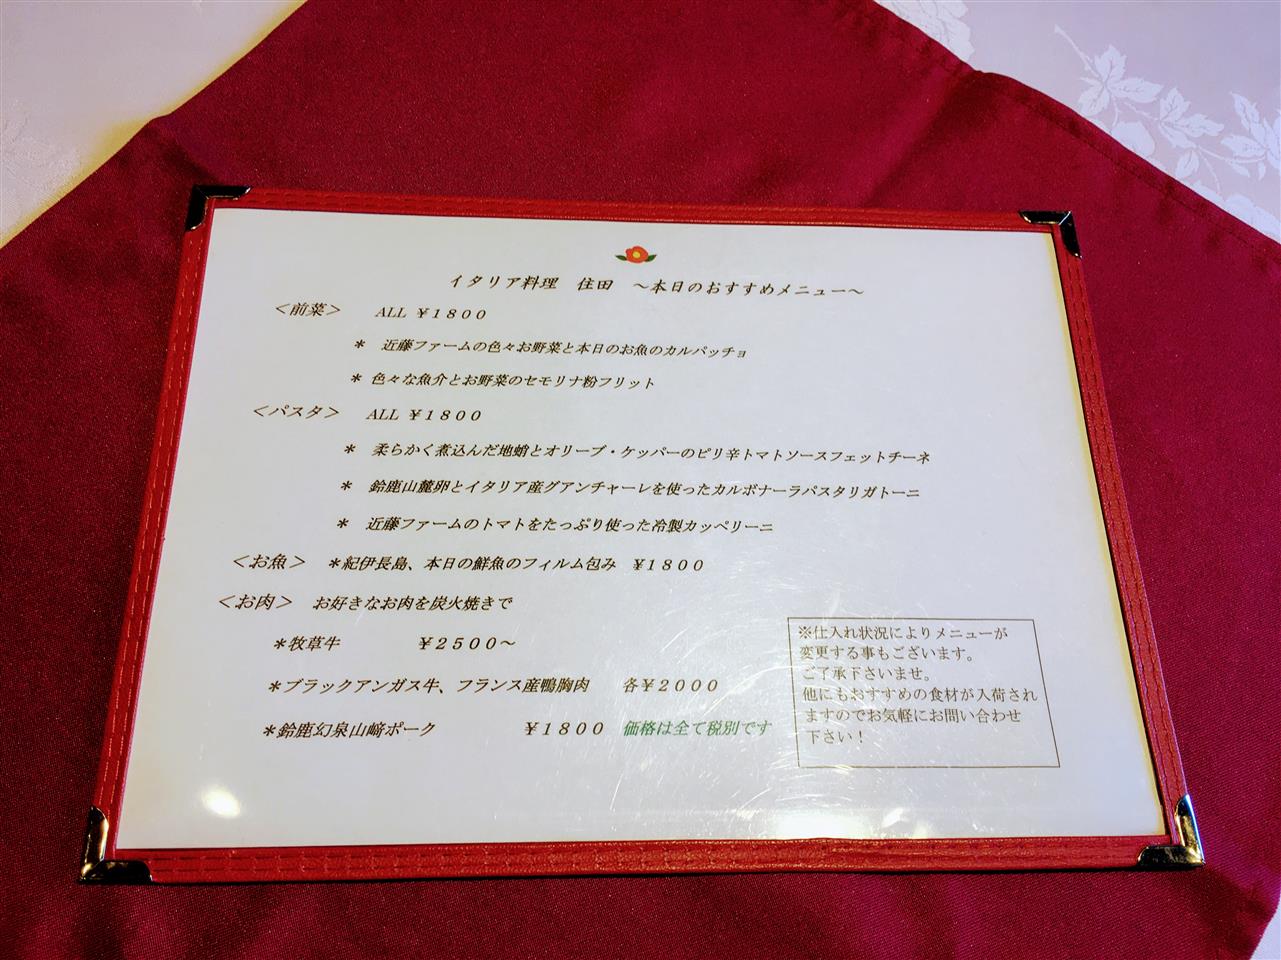 イタリア料理　住田　～本日のおすすめメニュー～
＜前菜＞　ALL ￥１８００
＊　近藤ファームの色々お野菜と本日のお魚のカルパッチョ
＊ 色々な魚介とお野菜のセモリナ粉フリット
＜パスタ＞　ALL ￥１８００
＊　柔らかく煮込んだ地蛸とオリーブ・ケッパーのピリ辛トマトソースフェットチーネ
＊　鈴鹿山麓卵とイタリア産グアンチャーレを使ったカルボナーラパスタリガトーニ
＊　近藤ファームのトマトをたっぷり使った冷製カッペリーニ
＜お魚＞　＊紀伊長島、本日の鮮魚のフィルム包み　￥１８００
＜お肉＞　お好きなお肉を炭火焼きで
＊牧草牛　￥２５００～
＊ブラックアンガス牛、フランス産鴨胸肉　各￥２０００
＊鈴鹿幻泉山﨑ポーク　￥１８００　価格は全て税別です
※仕入れ状況によりメニューが
変更する事もございます。
ご了承下さいませ。
他にもおすすめの食材が入荷され
ますのでお気軽にお問い合わせ
下さい！